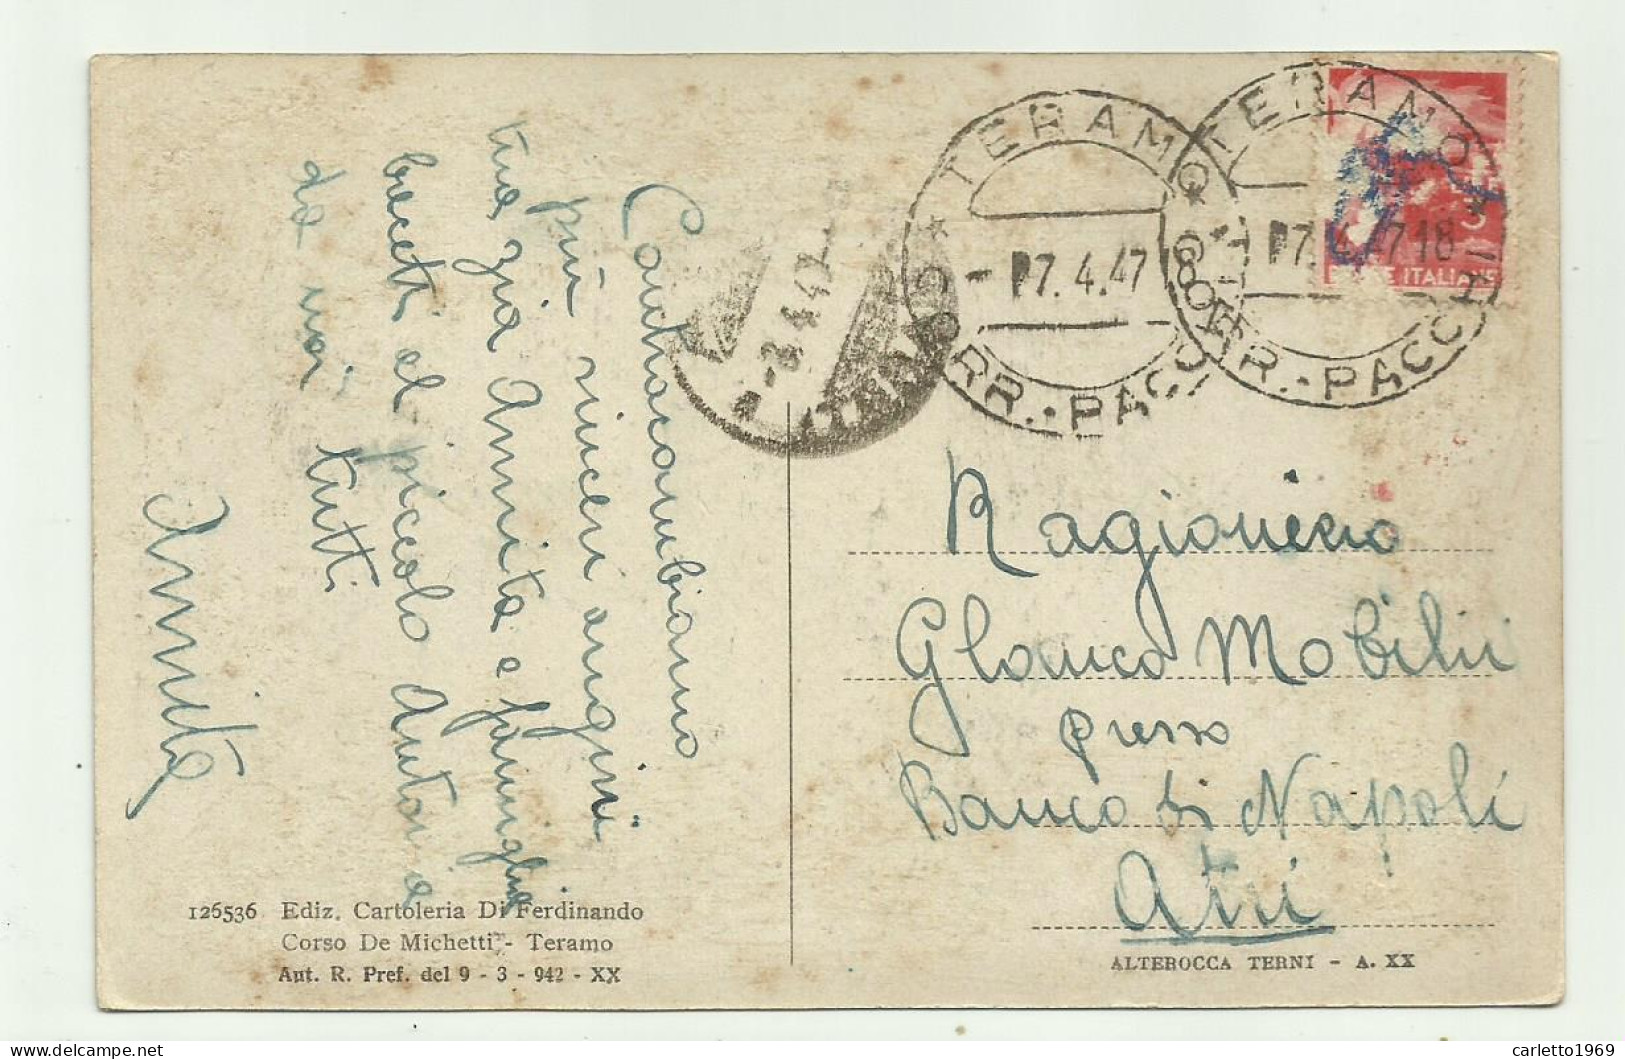 Contraccambiamo
più sinceri auguri
tua zia Annita e famiglia
baceti al piccolo Antonio
da noi tutti
Annita
126536 Ediz. Cartoleria Di Ferdinando
Corso De Michetti - Teramo
Aut. R. Pref. del 9 - 3 - 942 - XX
-8.4.47
TERAMO
-7.4.47
CORR. - PACCHI
TERAMO
7.4.47 18
CORR. - PACCHI
POSTE ITALIANE
Ragioniero
Glauco Mobilii
presso
Banco di Napoli
Atri
ALTEROCCA TERNI - A. XX
carletto1969